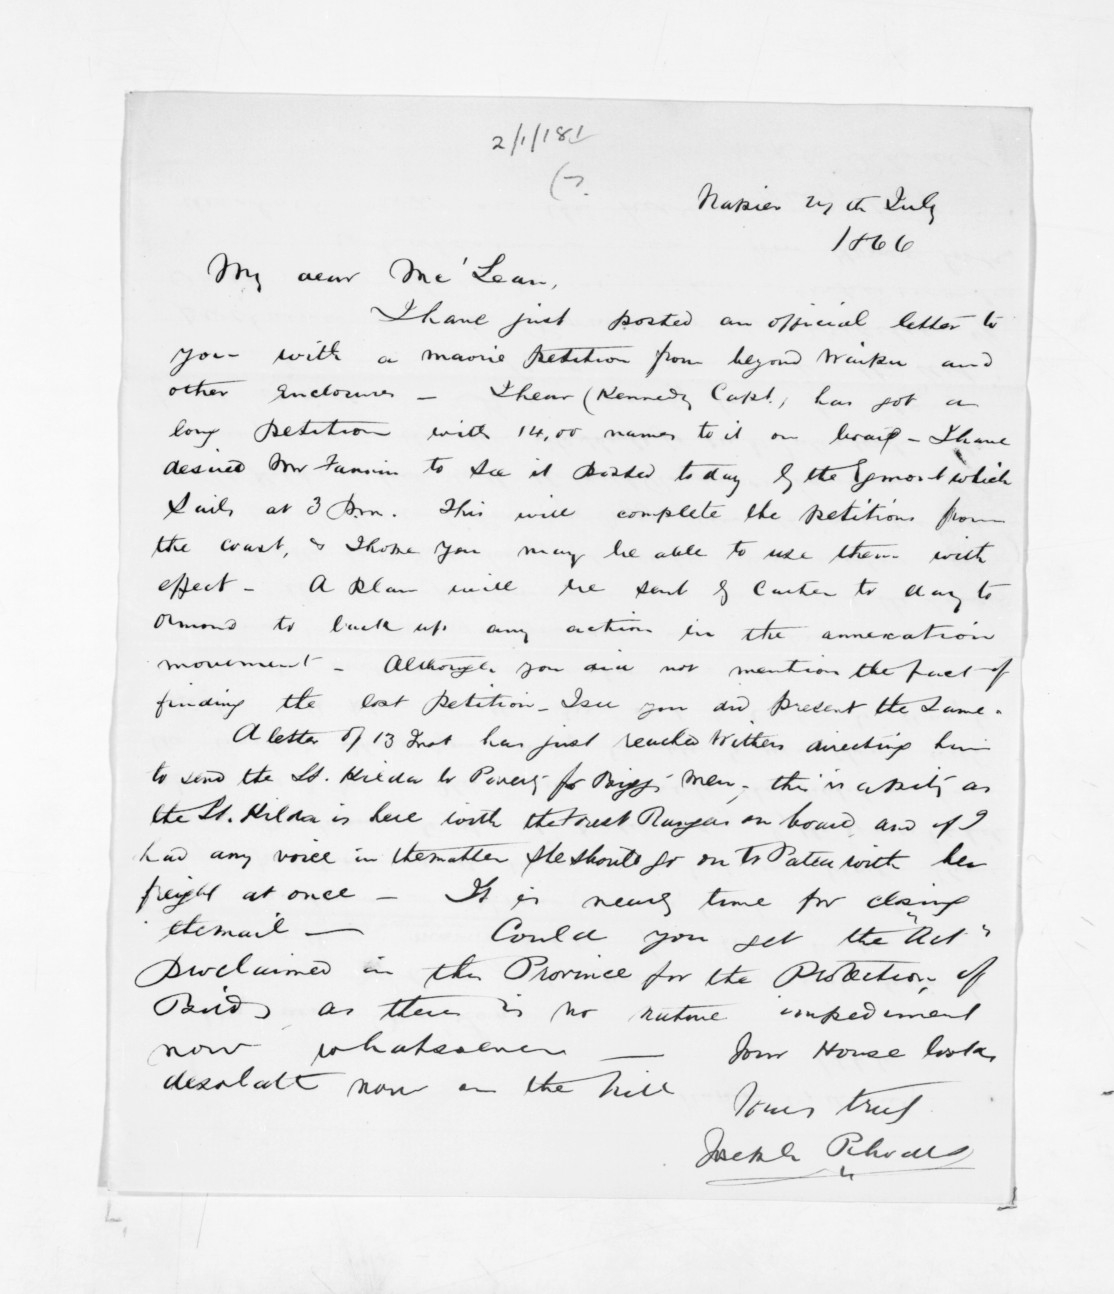 2/1/181
(7.
Napier 27th July
1866
My dear Mc'Lean,
I have just posted an official letter to
you with a maorie petition from beyond Waipu and
other enclosures - I hear (Kennedy Capt.) has got a
long petition with 14,00 names to it on board - I have
desired Mr Fannin to see it posted today by the Egmont which
Sails at 3 P.m. This will complete the petitions from
the coast, & I hope you may be able to use them with
effect - A plan will be sent by Carter to day to
Ormond to back up any action in the annexation
movement - Although you did not mention the fact of
finding the lost petition - I see you did present the Same.
A letter of 13 Inst has just reached Withers directing him
to send the St. Hilda to Poverty for Biggs' men, this is a pity as
the St. Hilda is here with the Forest Rangers on board and if I
had any voice in the matter She should go on to Patea with her
freight at once - It is nearly time for closing
the mail - Could you get the "Act"
proclaimed in this Province for the Protection of
Birds as there is no native impediment
now whatsoever - Your House looks
desolate now on the hill
Yours truly
Joseph Rhodes